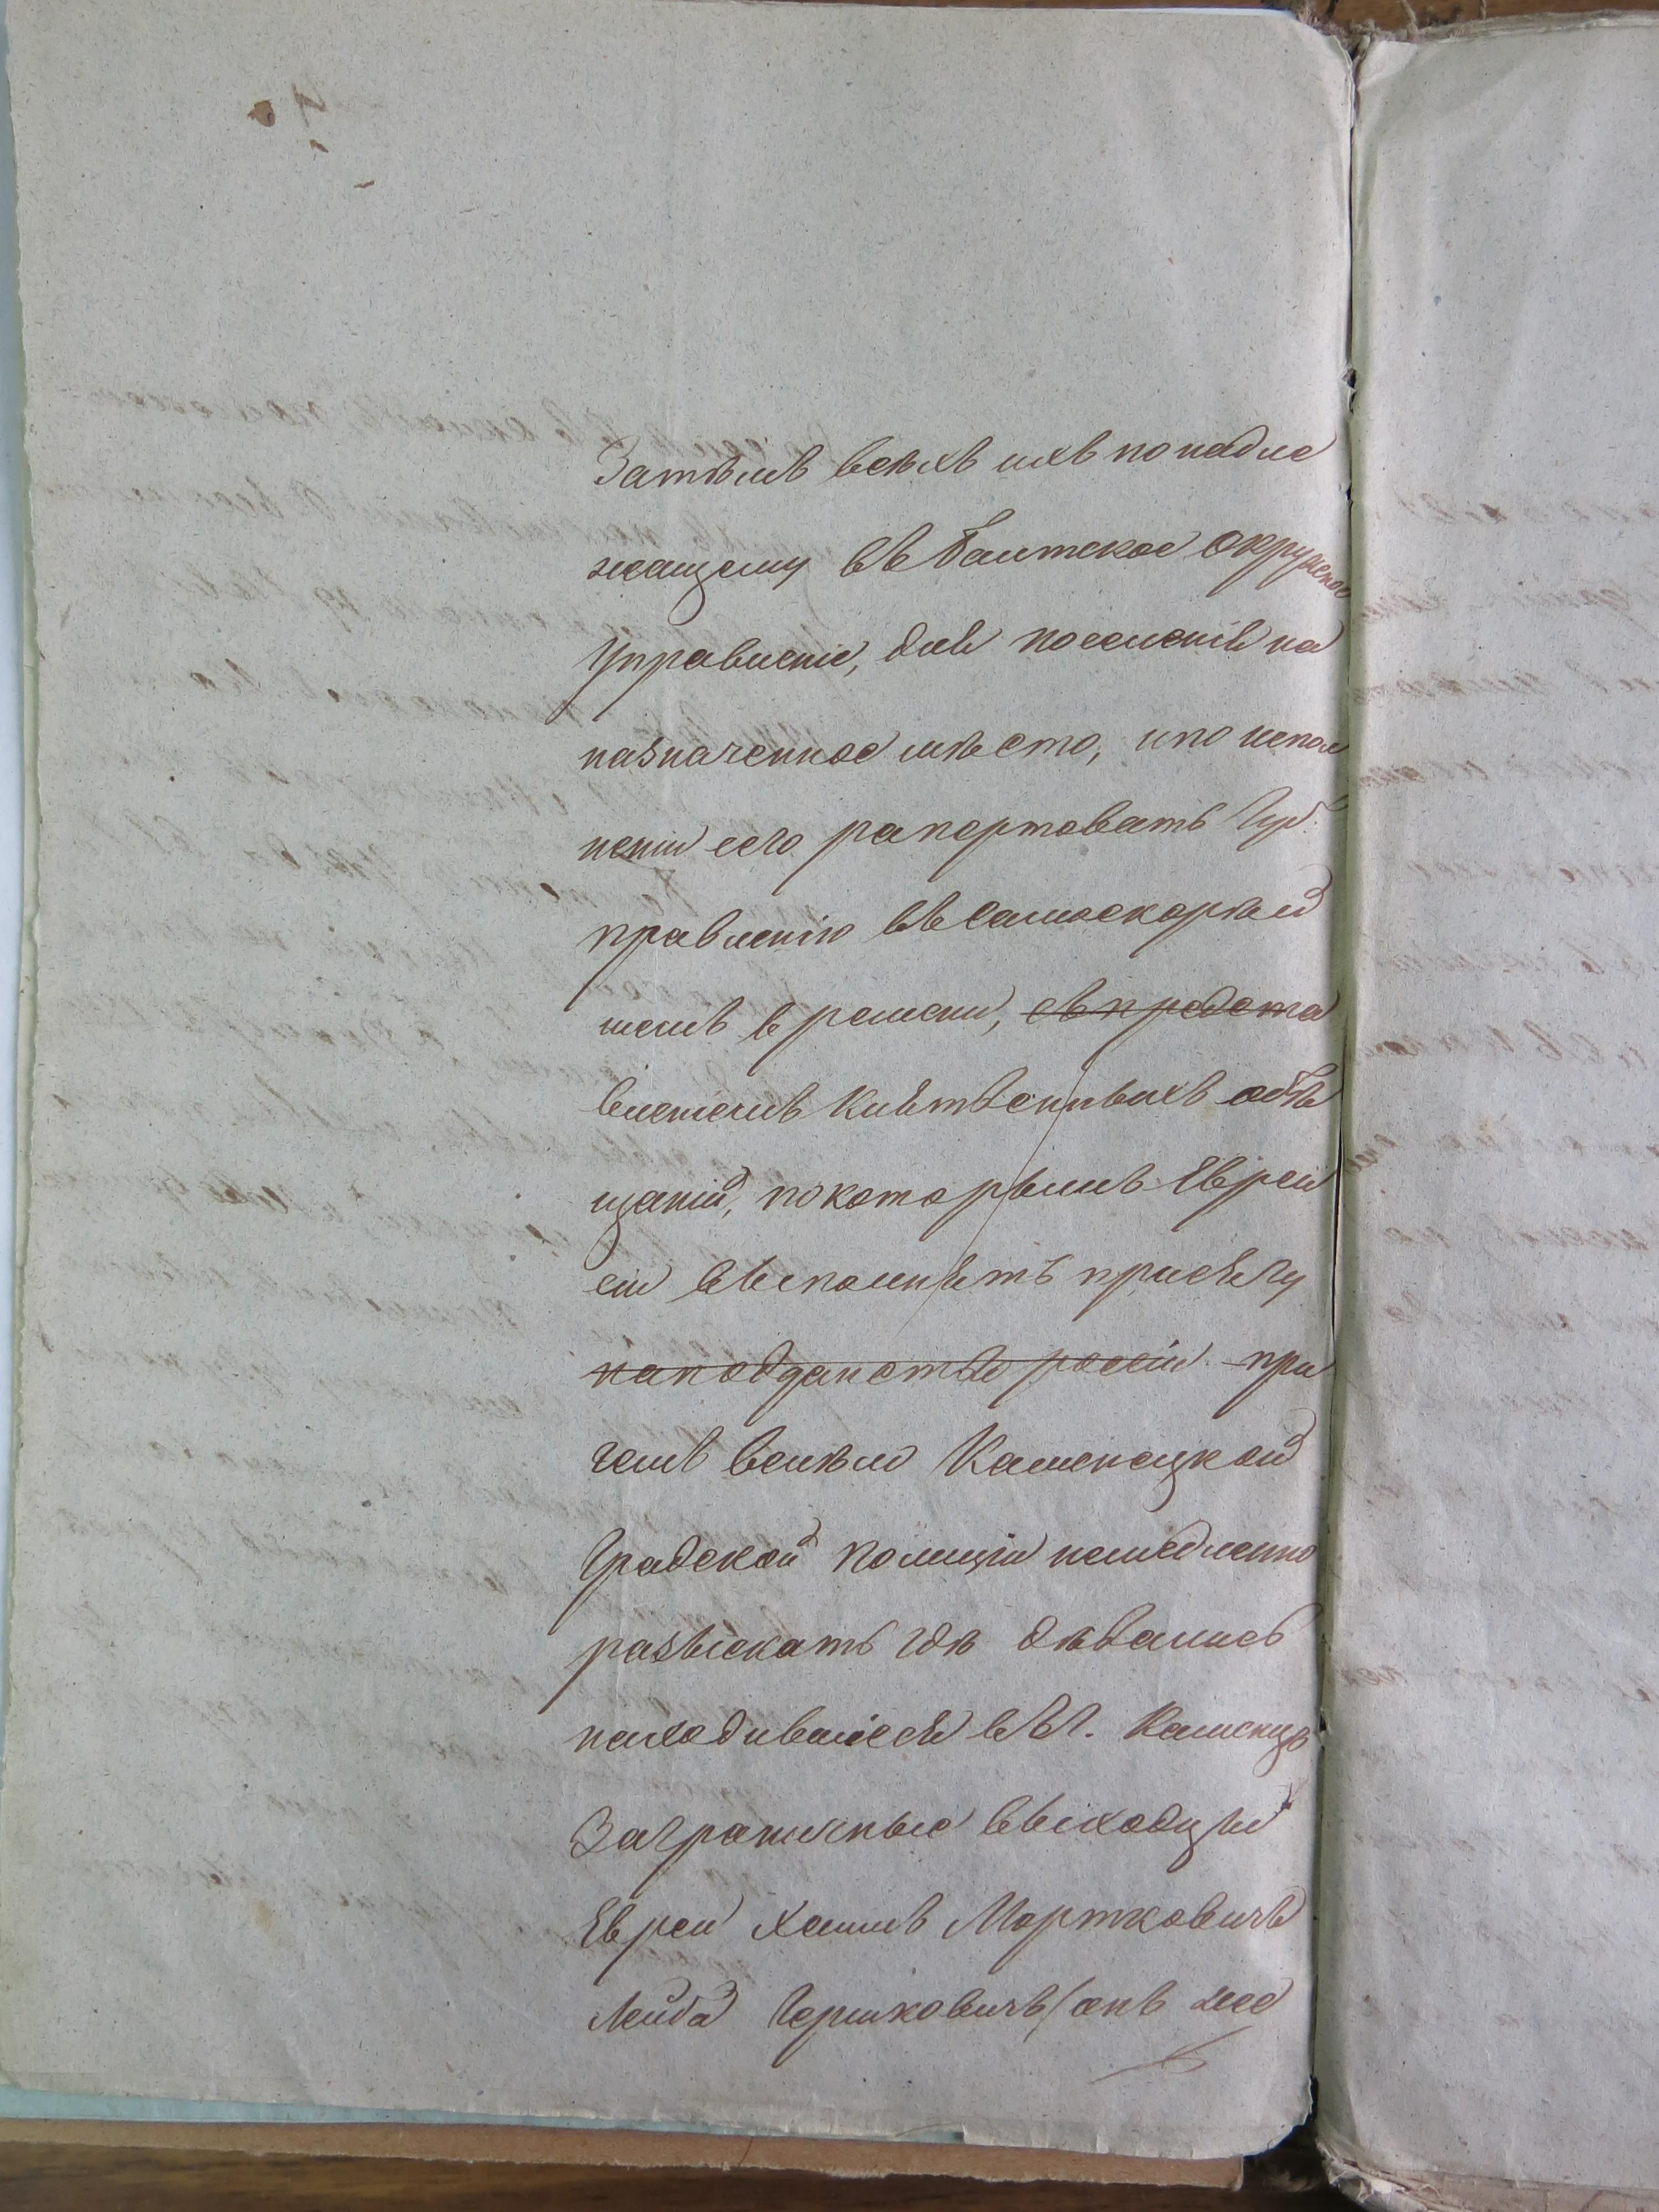 Затѣмъ всѣхъ ихъ по надле
жащему въ Балтское окружное
Управленіе, для поселенія на
назначенное мѣсто, и по испол
неніи сего рапортовать Губ.
правленію въ самоскорѣй
шемъ времени, съ предста
вленіемъ клятвенныхъ обѣ
щаній, по которымъ Евреи
сіи выполнятъ присягу
на подданство россіи при
чемъ велѣли Каменецкой
Градской Полиціи немедленно
разыскать гдѣ дѣвались
находившіеся въ г. Каменцѣ
Заграничные выходцы
Евреи Хаимъ Мортковичъ
Лейба Гершковичъ (онъ же